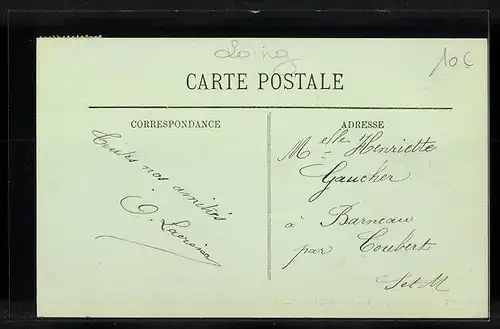 Loing
10c
CARTE POSTALE
CORRESPONDANCE
Toutes nos amitiés
O. Lacroix
ADRESSE
Melle Henriette
Gaucher
à Barneau
par Coubert
S et M